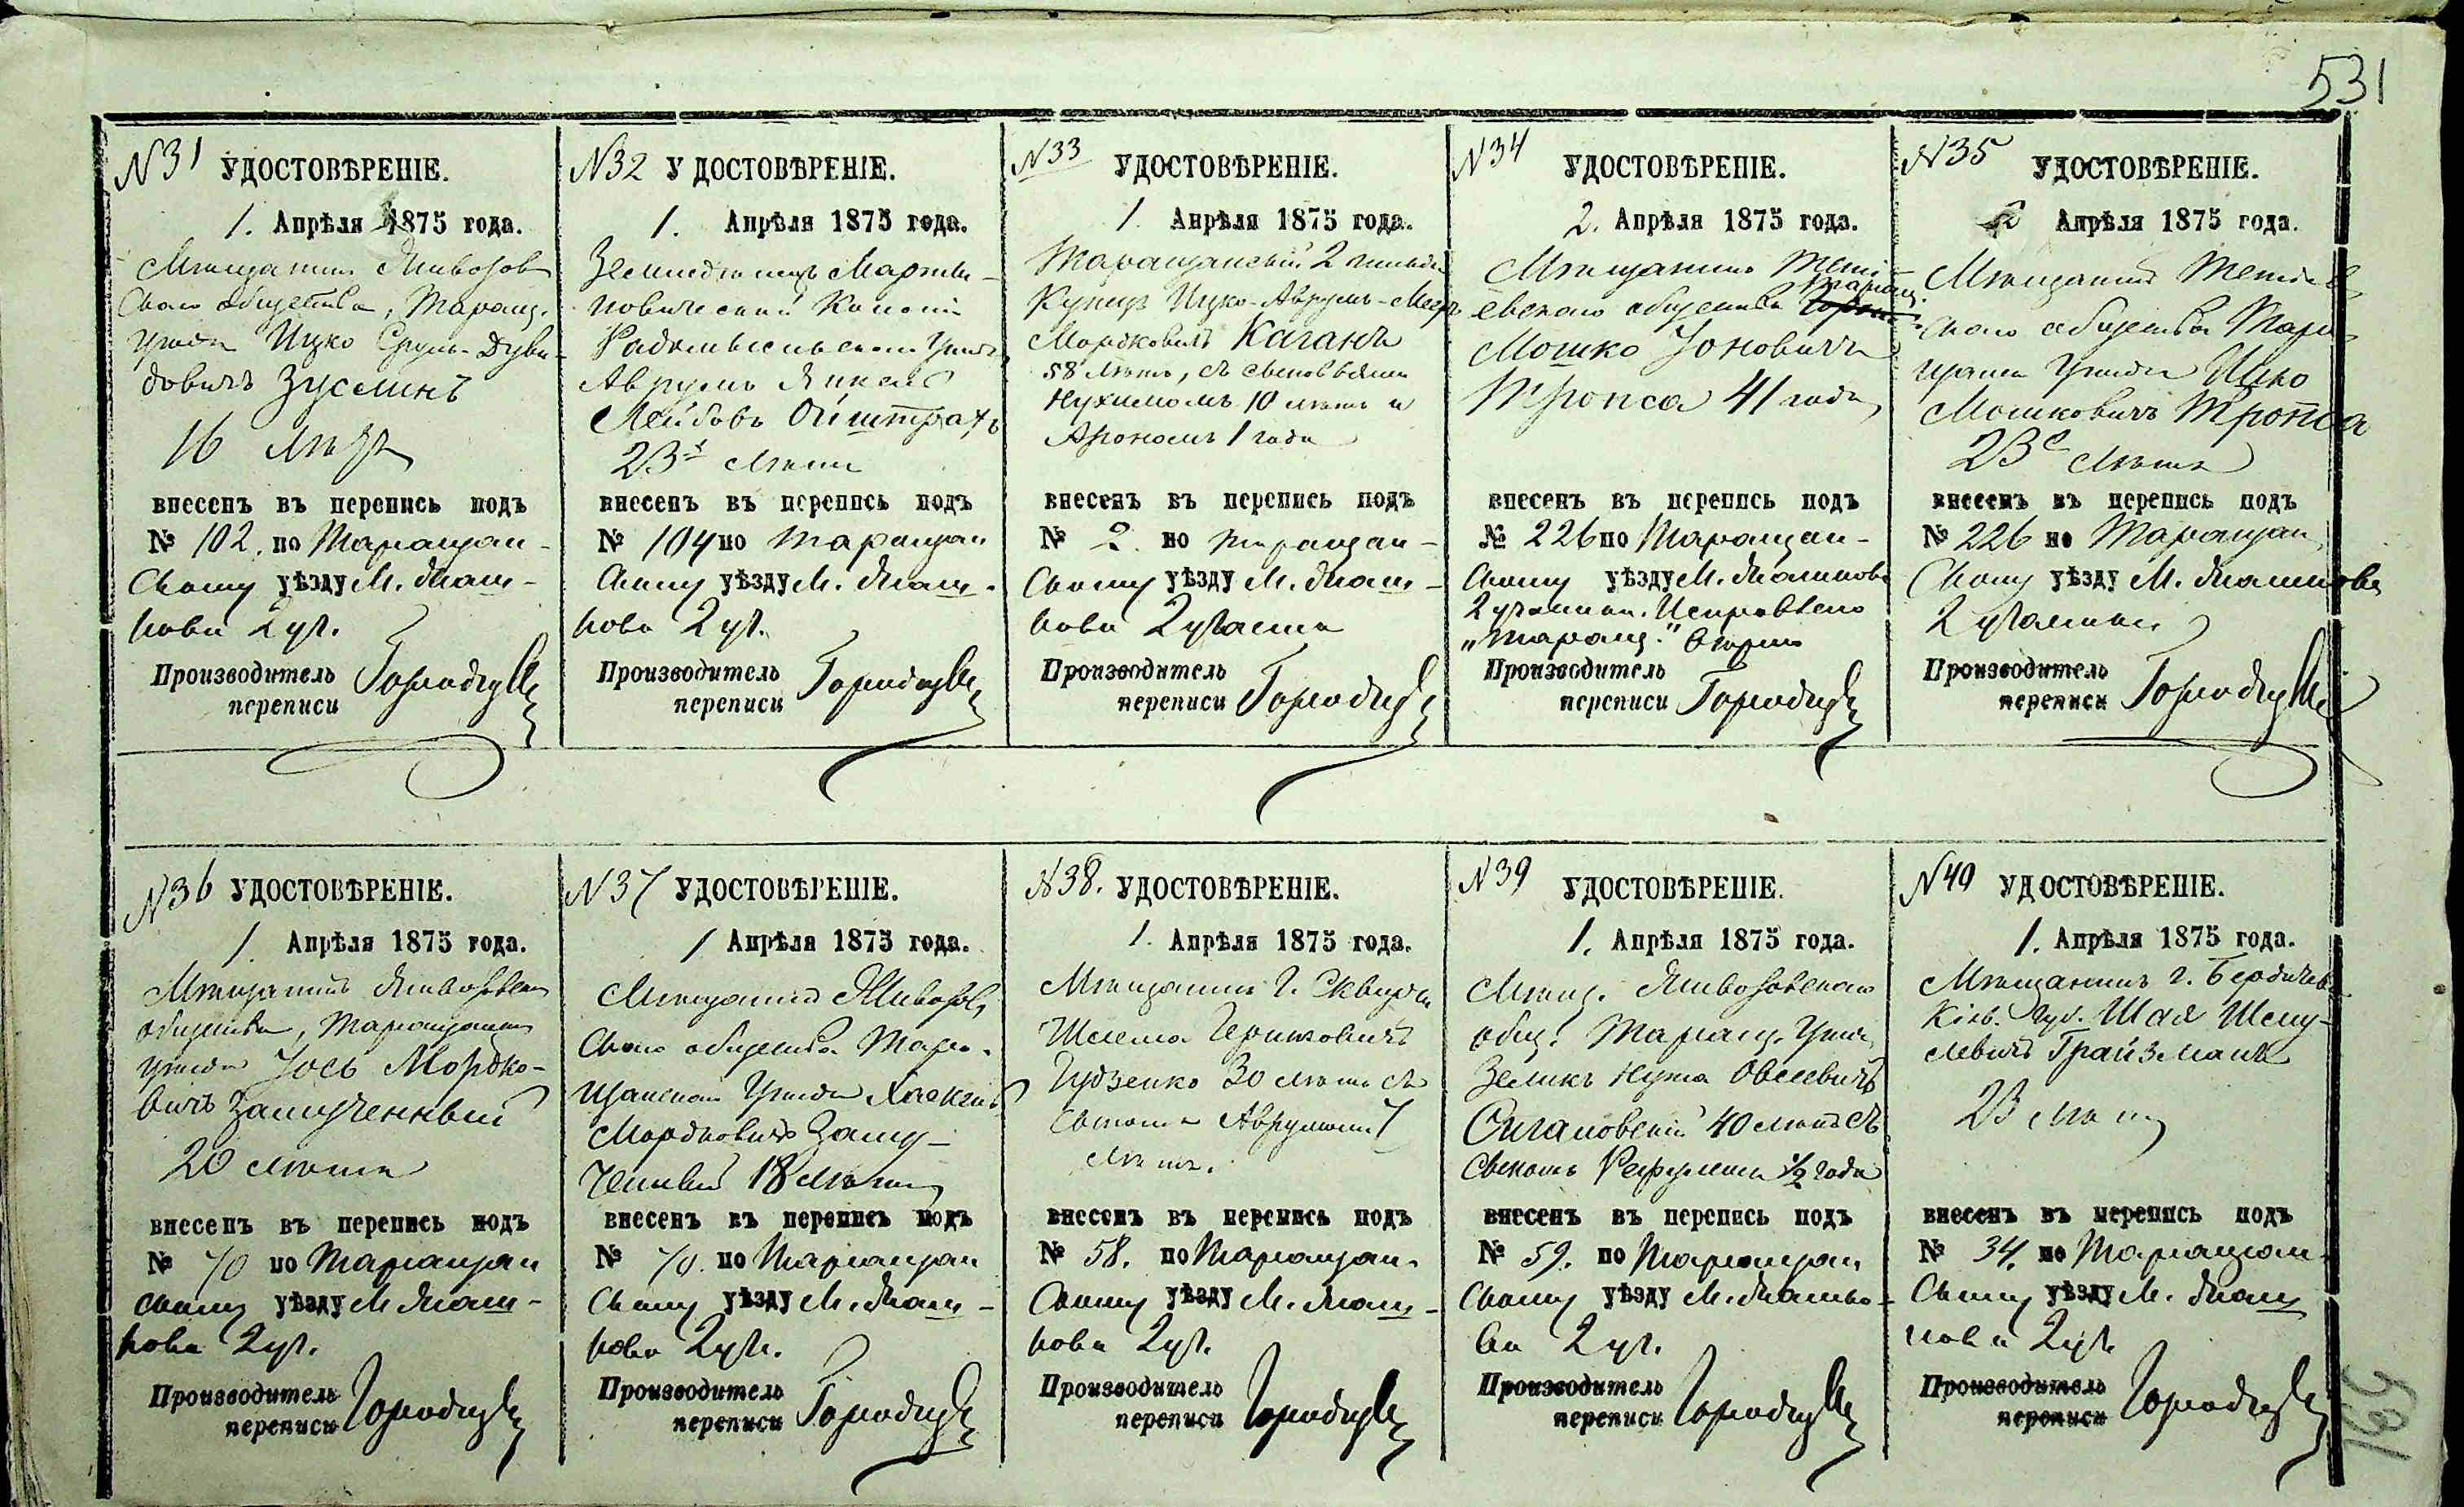 531
N31 УДОСТОВѢРЕНІЕ.
1. Апрѣля 1875 года.
Мѣщанинъ
скаго общества, Таращ.
уѣзда Ицко Сруль-Дуви-
довичъ Зуслинъ
16 лѣтъ
внесенъ въ перепись подъ
№ 102. по Таращан-
скому уѣзду М.
кова 2 уч.
Производитель
переписи
N32 УДОСТОВѢРЕНІЕ.
1. Апрѣля 1875 года.
Земледѣлецъ Марты-
новичской Колоніи
Радомысльскаго уѣзда
Аврумъ Янкель
Лейбовъ Ойштрахъ
23х лѣтъ
внесенъ въ перепись подъ
№ 104 по Таращан
скому уѣзду М.
кова 2 уч.
Производитель
переписи
N33 УДОСТОВѢРЕНІЕ.
1 Апрѣля 1875 года.
Таращанскій 2 гильдіи
Купецъ Ицко-Аврумъ-Меер
Мордковичъ Каганъ
58 лѣтъ, съ сыновьями
Нухимомъ 10 лѣтъ и
Арономъ 1 года
внесенъ въ перепись подъ
№ 2. по Таращан-
скому уѣзду М.
кова 2 участка
Производитель
переписи
N34 УДОСТОВѢРЕНІЕ.
2. Апрѣля 1875 года.
Мѣщанинъ Тетi-
евскаго общества Таращ.
Мошко Іоновичъ
Тропса 41 года
внесенъ въ перепись подъ
№ 226 по Таращан-
скому уѣзду М.
2 участка. Исправлено
„Таращ." вѣрно
Производитель
переписи
N35 УДОСТОВѢРЕНІЕ.
2 Апрѣля 1875 года.
Мѣщанинъ Тетіев
скаго общества Тара
щан уѣзда Ицко
Мошковичъ Тропса
23 лѣтъ
внесенъ въ перепись подъ
№ 226 по Таращан
скому уѣзду М.
2 участка
Производитель
переписи
N36 УДОСТОВѢРЕНІЕ.
1 Апрѣля 1875 года.
Мѣщанинъ
общества, Таращанск
уѣзда Іось Мордко-
вичъ Замученный
20 лѣтъ
внесенъ въ перепись подъ
№ 70 по Таращан
скому уѣзду М
кова 2 уч.
Производитель
переписи
N37 УДОСТОВѢРЕНІЕ.
1 Апрѣля 1875 года.
Мѣщанинъ
скаго общества Тара-
щанскаго уѣзда Хаскель
Мордковичъ Заму-
ченный 18 лѣтъ
внесенъ въ перепись подъ
№ 70. по Таращан
скому уѣзду М.
кова 2 уч.
Производитель
переписи
N38. УДОСТОВѢРЕНІЕ.
1. Апрѣля 1875 года.
Мѣщанинъ г. Сквиры
Шлема Гершковичъ
Гудзенко 30 лѣтъ съ
сыномъ Аврумомъ 7
лѣтъ.
внесенъ въ перепись подъ
№ 58. по Таращан-
скому уѣзду М.
кова 2 уч.
Производитель
переписи
N39 УДОСТОВѢРЕНІЕ.
1. Апрѣля 1875 года.
Мѣщ.
общ. Таращ. уѣзда
Зеликъ Нута Овсевичъ
40 лѣтъ съ
сыномъ 1/2 года
внесенъ въ перепись подъ
№ 59. по Таращан
скому уѣзду М.
ва 2 уч.
Производитель
переписи
N40 УДОСТОВѢРЕНІЕ.
1. Апрѣля 1875 года.
Мѣщанинъ г. Бердичев
Кіев. губ. Шая Шму-
левичъ Грайзманъ
23 лѣтъ
внесенъ въ перепись подъ
№ 34. по Таращан-
скому уѣзду М.
кова 2 уч.
Производитель
переписи
531